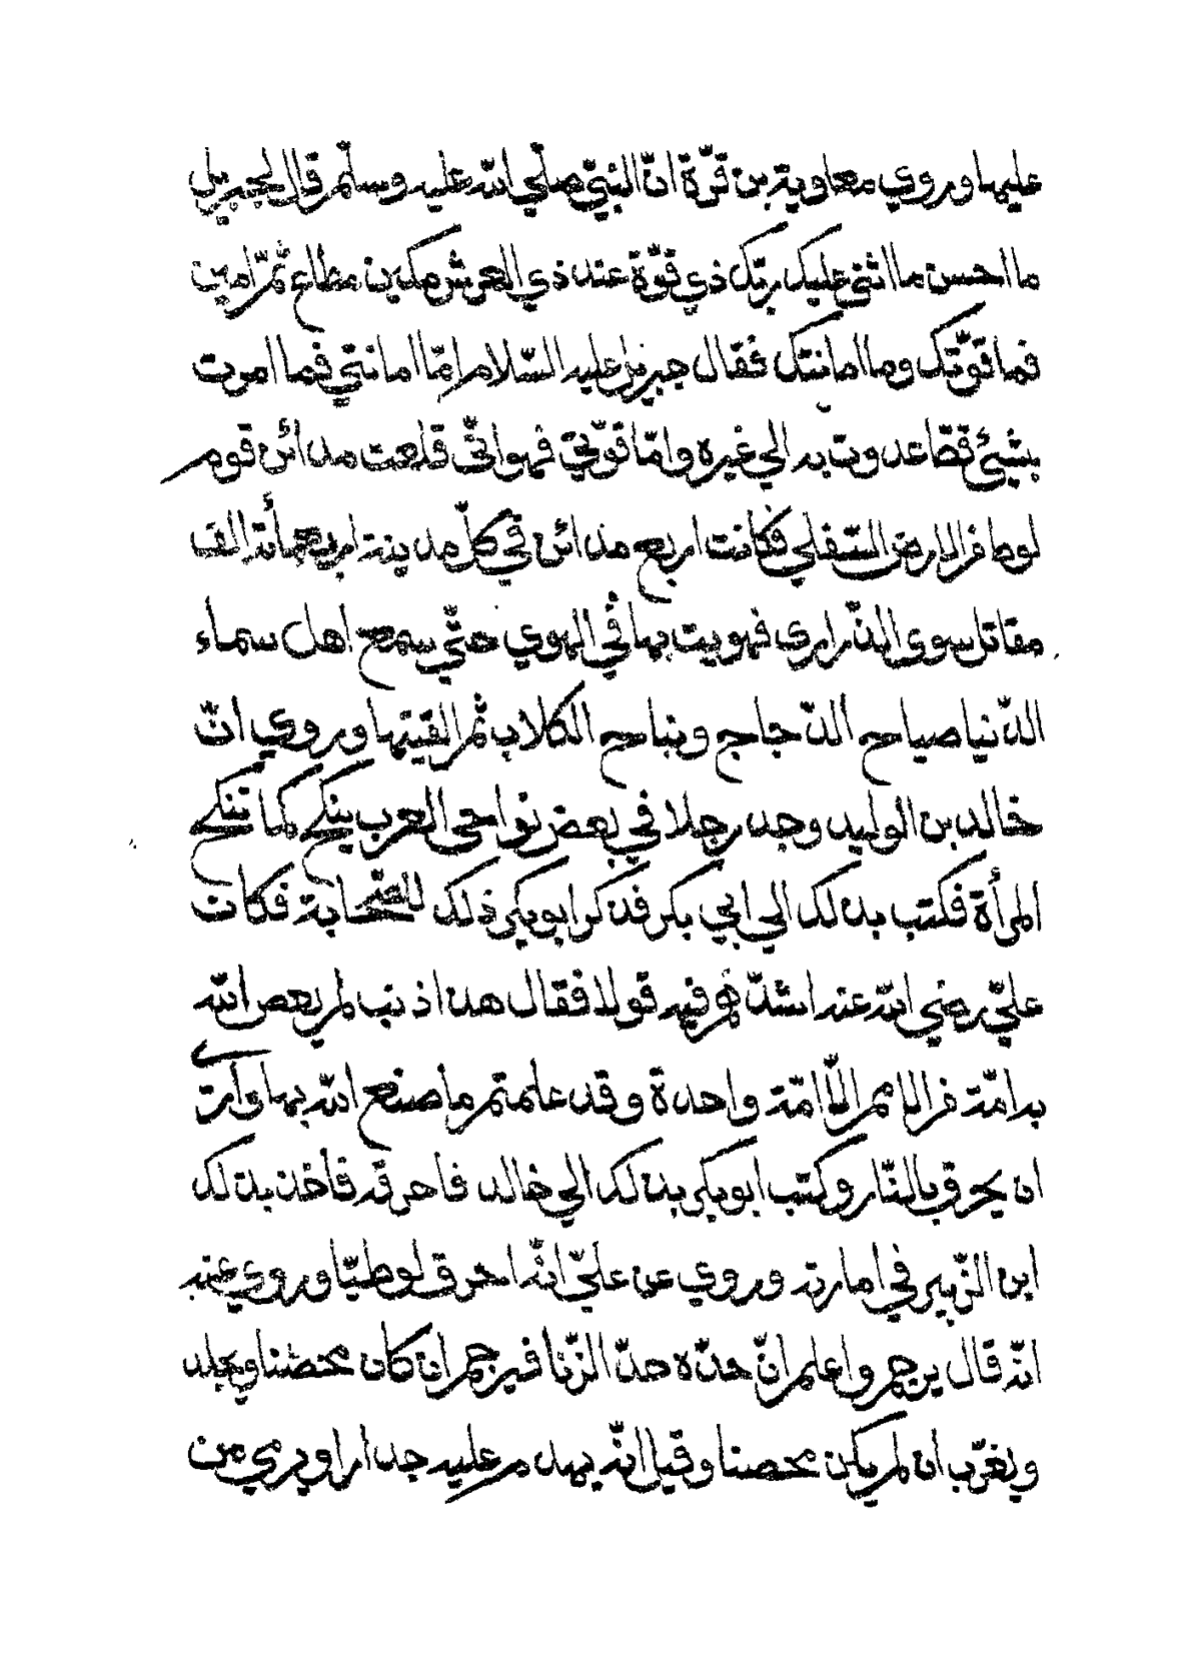 عليها وروي معاوية بن قرّة انّ النبيّ صلّي الله عليه وسلّم قال لجبريل
ما احسن ما اثني عليك ربّك ذي قوّة عند ذي العرش مكين مطاع ثمّ امين
فما قوّتك وما امانتك فقال جبريل عليه السّلام امّا امانتي فما امرت
بشيئ قطّ عدوت به الي غيره وامّا قوّتي فهو انّي قلعت مدائن قوم
لوط من الارض السّفلي فكانت اربع مدائن في كلّ مدينة اربعمأئة الف
مقاتل سوى الذّراري فهويت بها في الهوي حتّي سمع اهل سماء
الدّنيا صياح الدّجاج ونباح الكلاب ثمّ القيتها وروي انّ
خالد بن الوليد وجد رجلا في بعض نواحى العرب ينكح كما تنكح
المرأة فكتب بذلك الي ابي بكر فذكر ابو بكر ذلك للصّحابة فكان
عليّ رضي الله عنه اشدّهم فيه قولا فقال هذا ذنب لم يعص الله
به امّة من الامم الّا امّة واحدة وقد علمتم ما صنع الله بها وأرى
ان يحرق بالنّار وكتب ابو بكر بذلك الي خالد فاحرقه فأخذ بذلك
ابن الزّبير في امارته وروي عن عليّ انّه احرق لوطيّا وروي عنه
انّه قال يرجم واعلم انّ حدّه حدّ الزّنا فيرجم ان كان محصنا ويجلد
ويغرّب ان لم يكن محصنا وقيل انّه يهدم عليه جدار او يرمي من